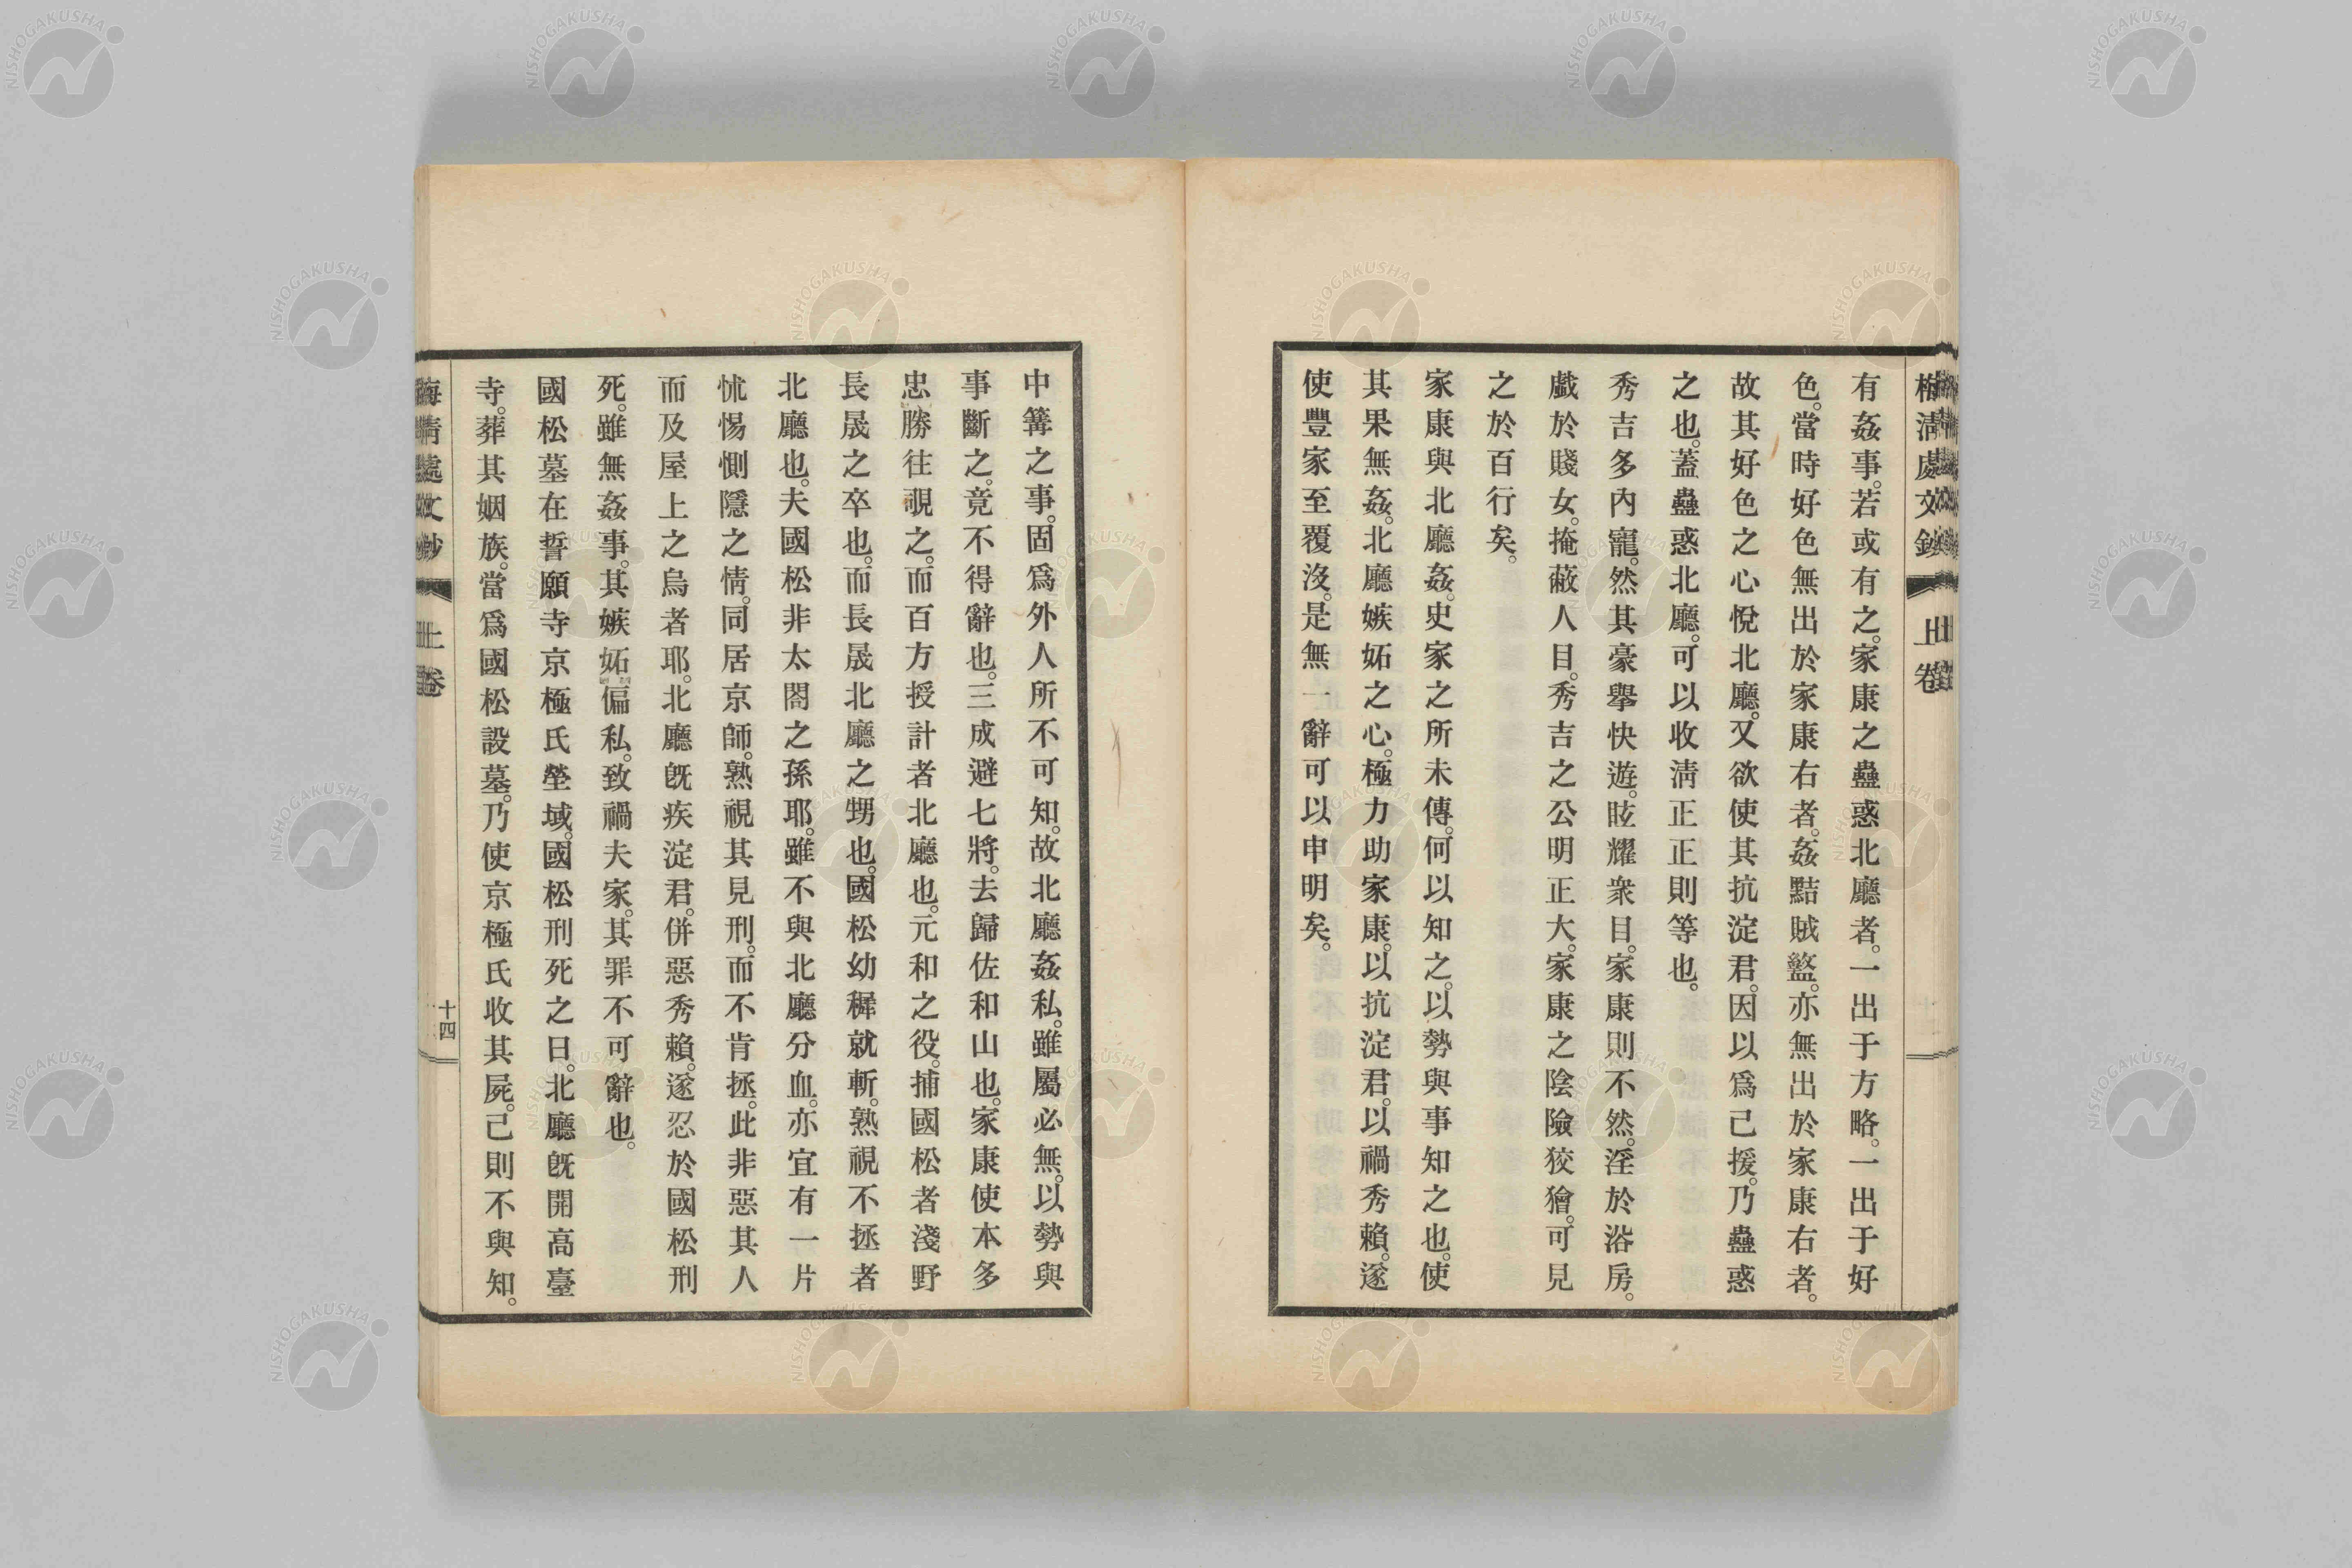 梅清處文鈔 上卷
有姦事。若或有之。家康之蠱惑北廳者。一出于方略。一出于好
色。當時好色無出於家康右者。姦黠賊盭。亦無出於家康右者。
故其好色之心悅北廳。又欲使其抗淀君。因以爲己援。乃蠱惑
之也。蓋蠱惑北廳。可以收淸正正則等也。
秀吉多內寵。然其豪擧快遊。眩耀衆目。家康則不然。淫於浴房。
戲於賤女。掩蔽人目。秀吉之公明正大。家康之陰險狡獪。可見
之於百行矣。
家康與北廳姦。史家之所未傳。何以知之。以勢與事知之也。使
其果無姦。北廳嫉妬之心。極力助家康。以抗淀君。以禍秀賴。遂
使豐家至覆沒。是無一辭可以申明矣。
中篝之事。固爲外人所不可知。故北廳姦私。雖屬必無。以勢與
事斷之。竟不得辭也。三成避七將。去歸佐和山也。家康使本多
忠勝往覗之。而百方授計者北廳也。元和之役。捕國松者淺野
長晟之卒也。而長晟北廳之甥也。國松幼穉就斬。熟視不拯者
北廳也。夫國松非太閤之孫耶。雖不與北廳分血。亦宜有一片
怵惕惻隱之情。同居京師。熟視其見刑。而不肯拯。此非惡其人
而及屋上之烏者耶。北廳旣疾淀君。併惡秀賴。遂忍於國松刑
死。雖無姦事。其嫉妬偏私。致禍夫家。其罪不可辭也。
國松墓在誓願寺京極氏塋域。國松刑死之日。北廳旣開高臺
寺。葬其姻族。當爲國松設墓。乃使京極氏收其屍。己則不與知。
梅清處文鈔 上卷 十四
NISHOGAKUSHA